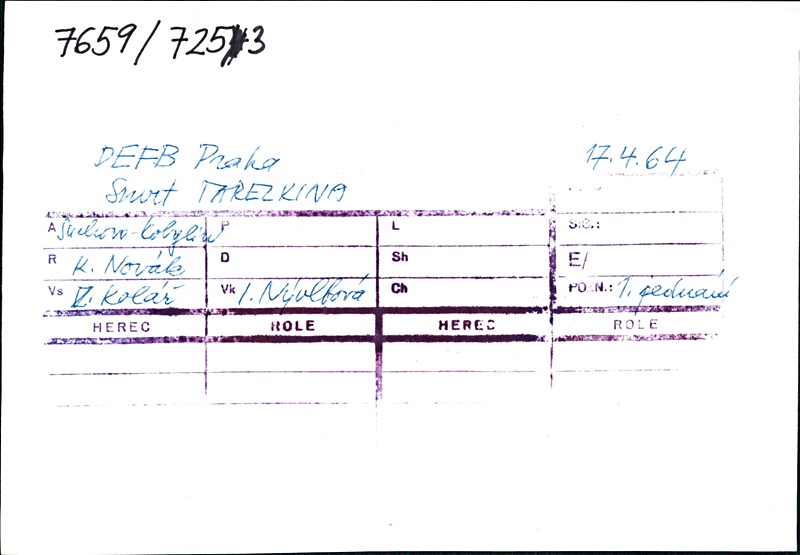 7659/72543
DEFB Praha 17.4.64
Smrt TARELKINA
A Suchovo-Kobylin P L Sig.:
R K. Novák D Sh E/
Vs Z. Kolář Vk I. Nývltová Ch POZN.: 1. jednání
HEREC ROLE HEREC ROLE